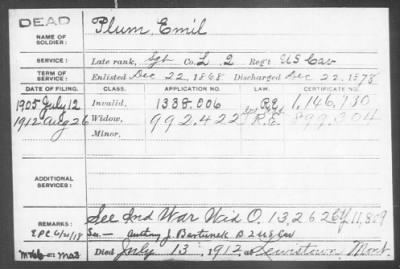 DEAD
NAME OF SOLDIER:
Plum, Emil
SERVICE:
Late rank, Sgt Co. L, 2 Reg't US Cav
TERM OF SERVICE:
Enlisted Dec 22, 1868 Discharged Dec 22, 1878
DATE OF FILING. CLASS. APPLICATION NO. LAW. CERTIFICATE NO.
1905 July 12 Invalid, 1338.006 1,146,930
1912 Aug 26 Widow, 992.422 899,304
Minor,
ADDITIONAL SERVICES:
REMARKS:
See Ind War Wid O. 13,262
Died July 13, 1912, at Lewistown Mont.